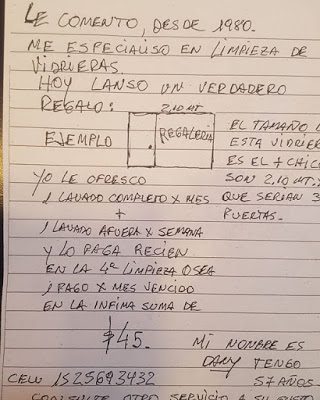 LE COMENTO, DESDE 1980.
ME ESPECIALISO EN LIMPIEZA DE
VIDRIERAS.
HOY LANSO UN VERDADERO
REGALO:
2,10 MT
EJEMPLO
REGALERIA
EL TAMAÑO D
ESTA VIDRIER
ES EL + CHICO
SON 2,10 MT. Y
QUE SERIAN 3
PUERTAS.
YO LE OFRESCO
1 LAVADO COMPLETO X MES
+
1 LAVADO AFUERA X SEMANA
Y LO PAGA RECIEN
EN LA 4ª LIMPIEZA OSEA
1 PAGO X MES VENCIDO
EN LA INFIMA SUMA DE
$45.
MI NOMBRE ES
DANY TENGO
57 AÑOS.
CELU 1525693432
OTRO SERVICIO A SU GUSTO